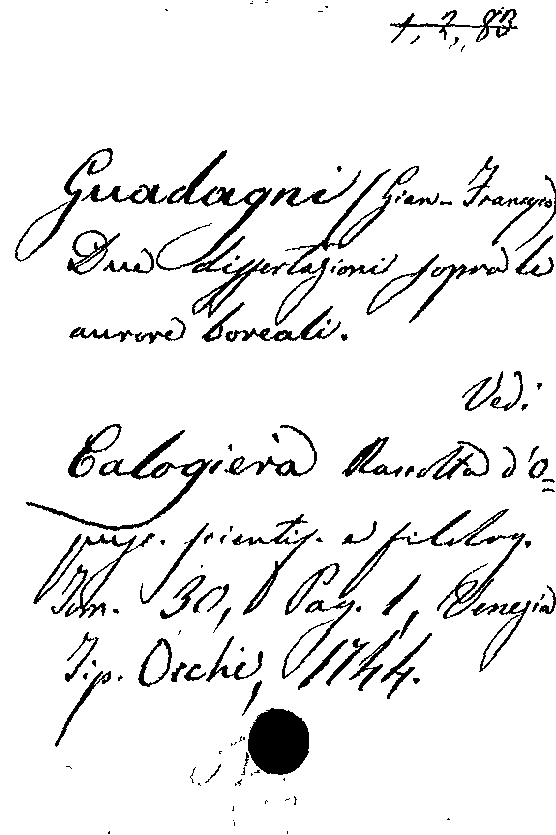 1, 2, 83
Guadagni (Gian-Francesco)
Due dissertazioni sopra le
aurore boreali.
Vedi
Calogierà Raccolta d'O=
pusc. scientif. e filolog.
Tom. 30, Pag. 1, Venezia
Tip. Occhi, 1744.